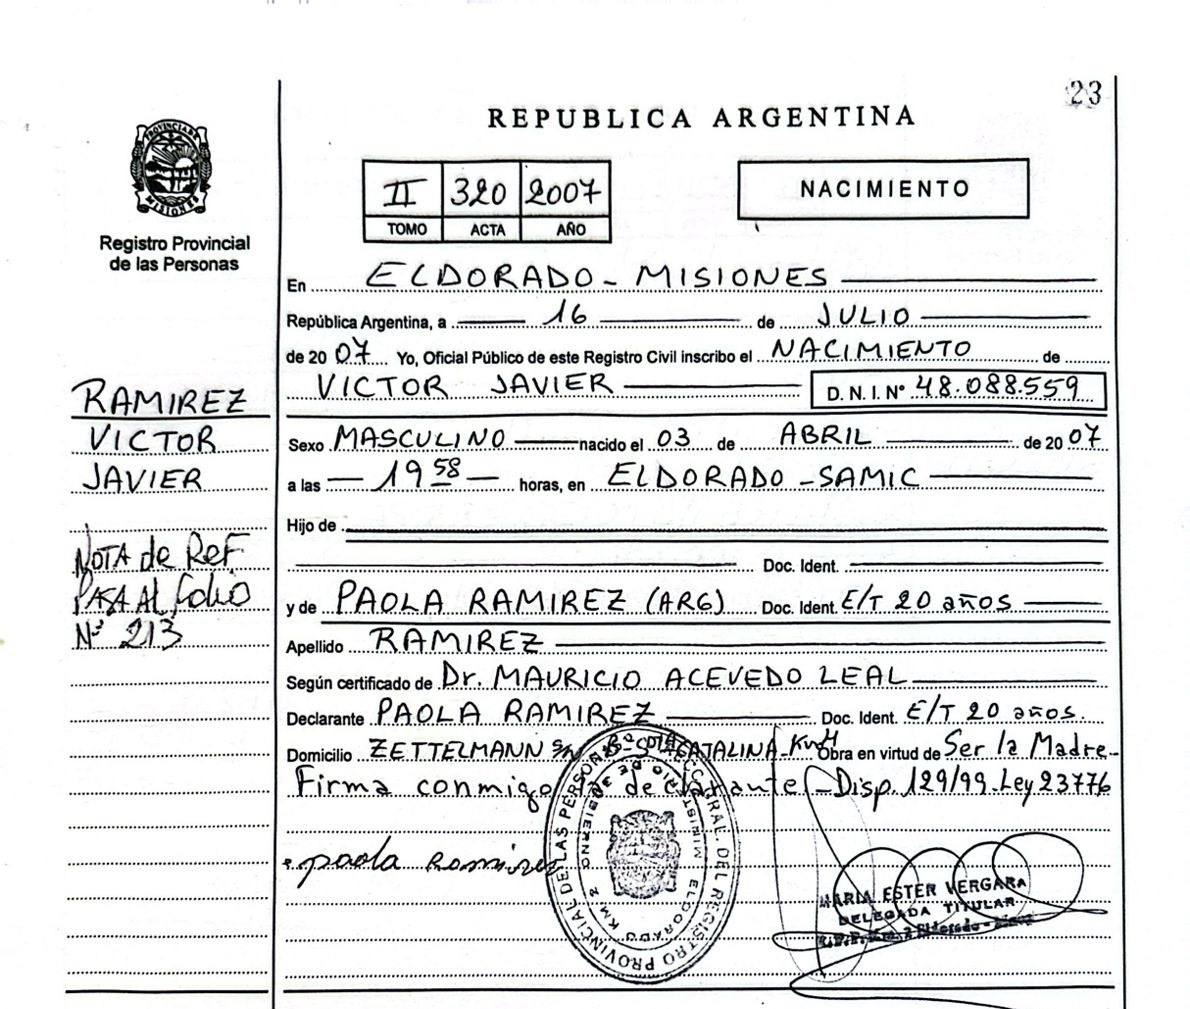 23
REPUBLICA ARGENTINA
PROVINCIA DE
MISIONES
Registro Provincial
de las Personas
II 320 2007
TOMO ACTA AÑO
NACIMIENTO
En ELDORADO - MISIONES
República Argentina, a 16 de JULIO
de 20 07 Yo, Oficial Público de este Registro Civil inscribo el NACIMIENTO de
VICTOR JAVIER D. N. I. Nº 48.088.559
RAMIREZ
VICTOR
JAVIER
Sexo MASCULINO nacido el 03 de ABRIL de 20 07
a las 19 58 horas, en ELDORADO - SAMIC
Hijo de
Doc. Ident.
NOTA de Ref
PASA Al folio
Nº 213
y de PAOLA RAMIREZ (ARG) Doc. Ident. E/T 20 años
Apellido RAMIREZ
Según certificado de Dr. MAURICIO ACEVEDO LEAL
Declarante PAOLA RAMIREZ Doc. Ident. E/T 20 años.
Domicilio ZETTELMANN s/n CATALINA Km4 Obra en virtud de Ser la Madre-
Firma conmigo la declarante - Disp. 129/99 - Ley 23776
paola Ramirez
GRAL. DEL REGISTRO PROVINCIAL DE LAS PERSONAS
MINISTERIO DE GOBIERNO
ELDORADO KM 2
MARIA ESTER VERGARA
DELEGADA TITULAR
Eldorado